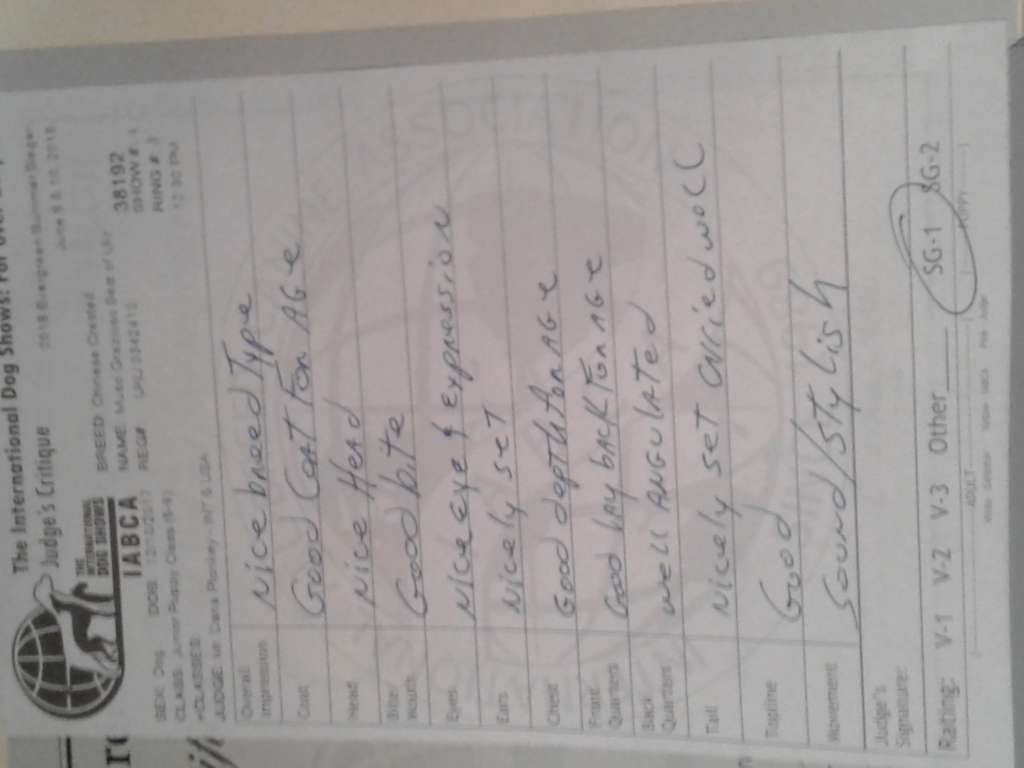 The International Dog Shows: For
Judge's Critique
2018 Evergreen Summer Sieger
June 9 & 10, 2018
THE INTERNATIONAL DOG SHOWS
IABCA
BREED: Chinese Crested
38192
NAME:
SHOW #: 1
REG#
RING #: 3
SEX: Dog DOB: 12/12/2017
12:30 PM
CLASS: Junior Puppy Class (6-9)
+CLASSES:
JUDGE: Mr. INT'L USA
Overall Impression Nice breed Type
Coat Good Coat For Age
Head Nice Head
Bite/Mouth Good bite
Eyes Nice eye & expression
Ears Nicely set
Chest Good depth for Age
Front Quarters Good lay back for Age
Back Quarters Well Angulated
Tail Nicely set carried well
Topline Good
Movement Sound/Stylish
Judge's Signature:
Rating: V-1 V-2 V-3 Other SG-1 SG-2
ADULT PUPPY